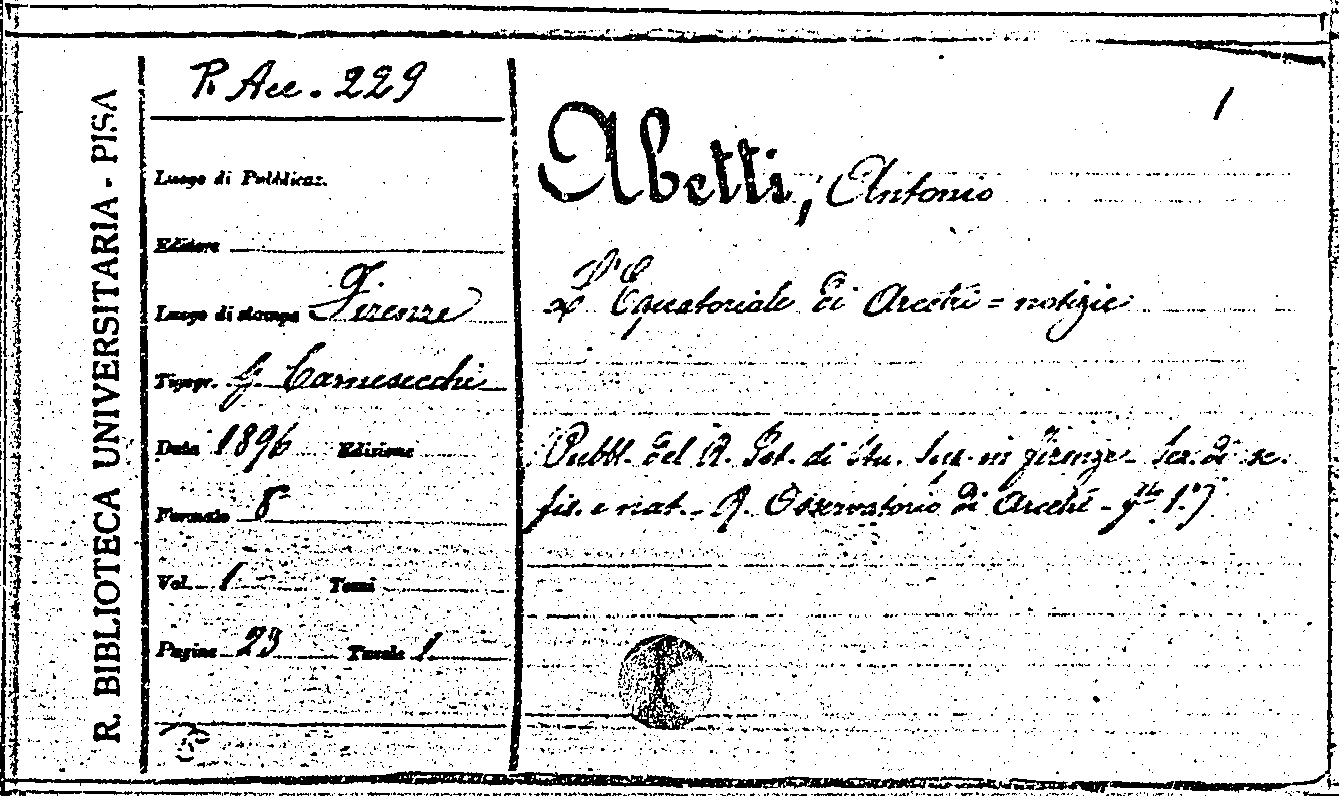 R. BIBLIOTECA UNIVERSITARIA - PISA
R. Acc. 229
Luogo di Pubblicaz.
Editore
Luogo di stampa Firenze
Tipogr. G. Carnesecchi
Data 1896 Edizione
Formato 8°
Vol. 1 Tomi
Pagine 23 Tavole 1
1
Abetti, Antonio
L'Equatoriale di Arcetri = notizie
Pubbl. del R. Ist. di Stu. Sup. in Firenze - Sez. di sc.
fis. e nat. - R. Osservatorio di Arcetri -